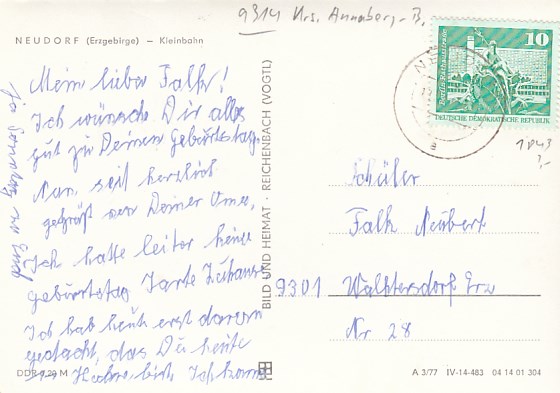 9314 Krs. Annaberg-B.
NEUDORF (Erzgebirge) — Kleinbahn
Mein lieber Falk!
Ich wünsche Dir alles
gut zu Deinem Geburtstag.
Nun seit herzlich
gegrüßt von Deiner Oma,
Ich hatte leiter keine
geburtstag Karte Zuhause
Ich hab heute erst daran
gedacht, das Du heute
Ich komm
ja Sonntag
BILD UND HEIMAT · REICHENBACH (VOGTL)
10
Berlin, Rathausstraße
DEUTSCHE DEMOKRATISCHE REPUBLIK
1843
Schüler
Falk Neubert
9301 Walthersdorf Erz
Nr 28
DDR 0,20 M
A 3/77 IV-14-483 04 14 01 304